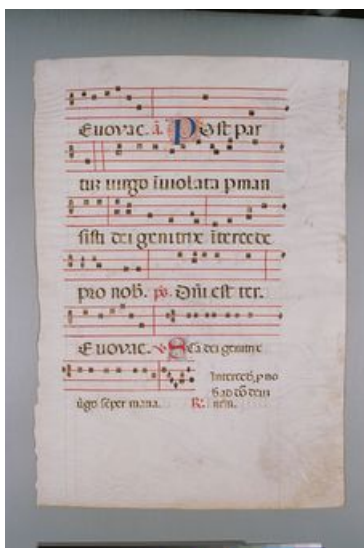 Euovae. a. Post par
tum uirgo inuiolata pman
sisti dei genitrix intercede
pro nob. ps. Dni est ter.
Euovae. v. Sca dei genitrix
uirgo semper maria. R. Intercede p no